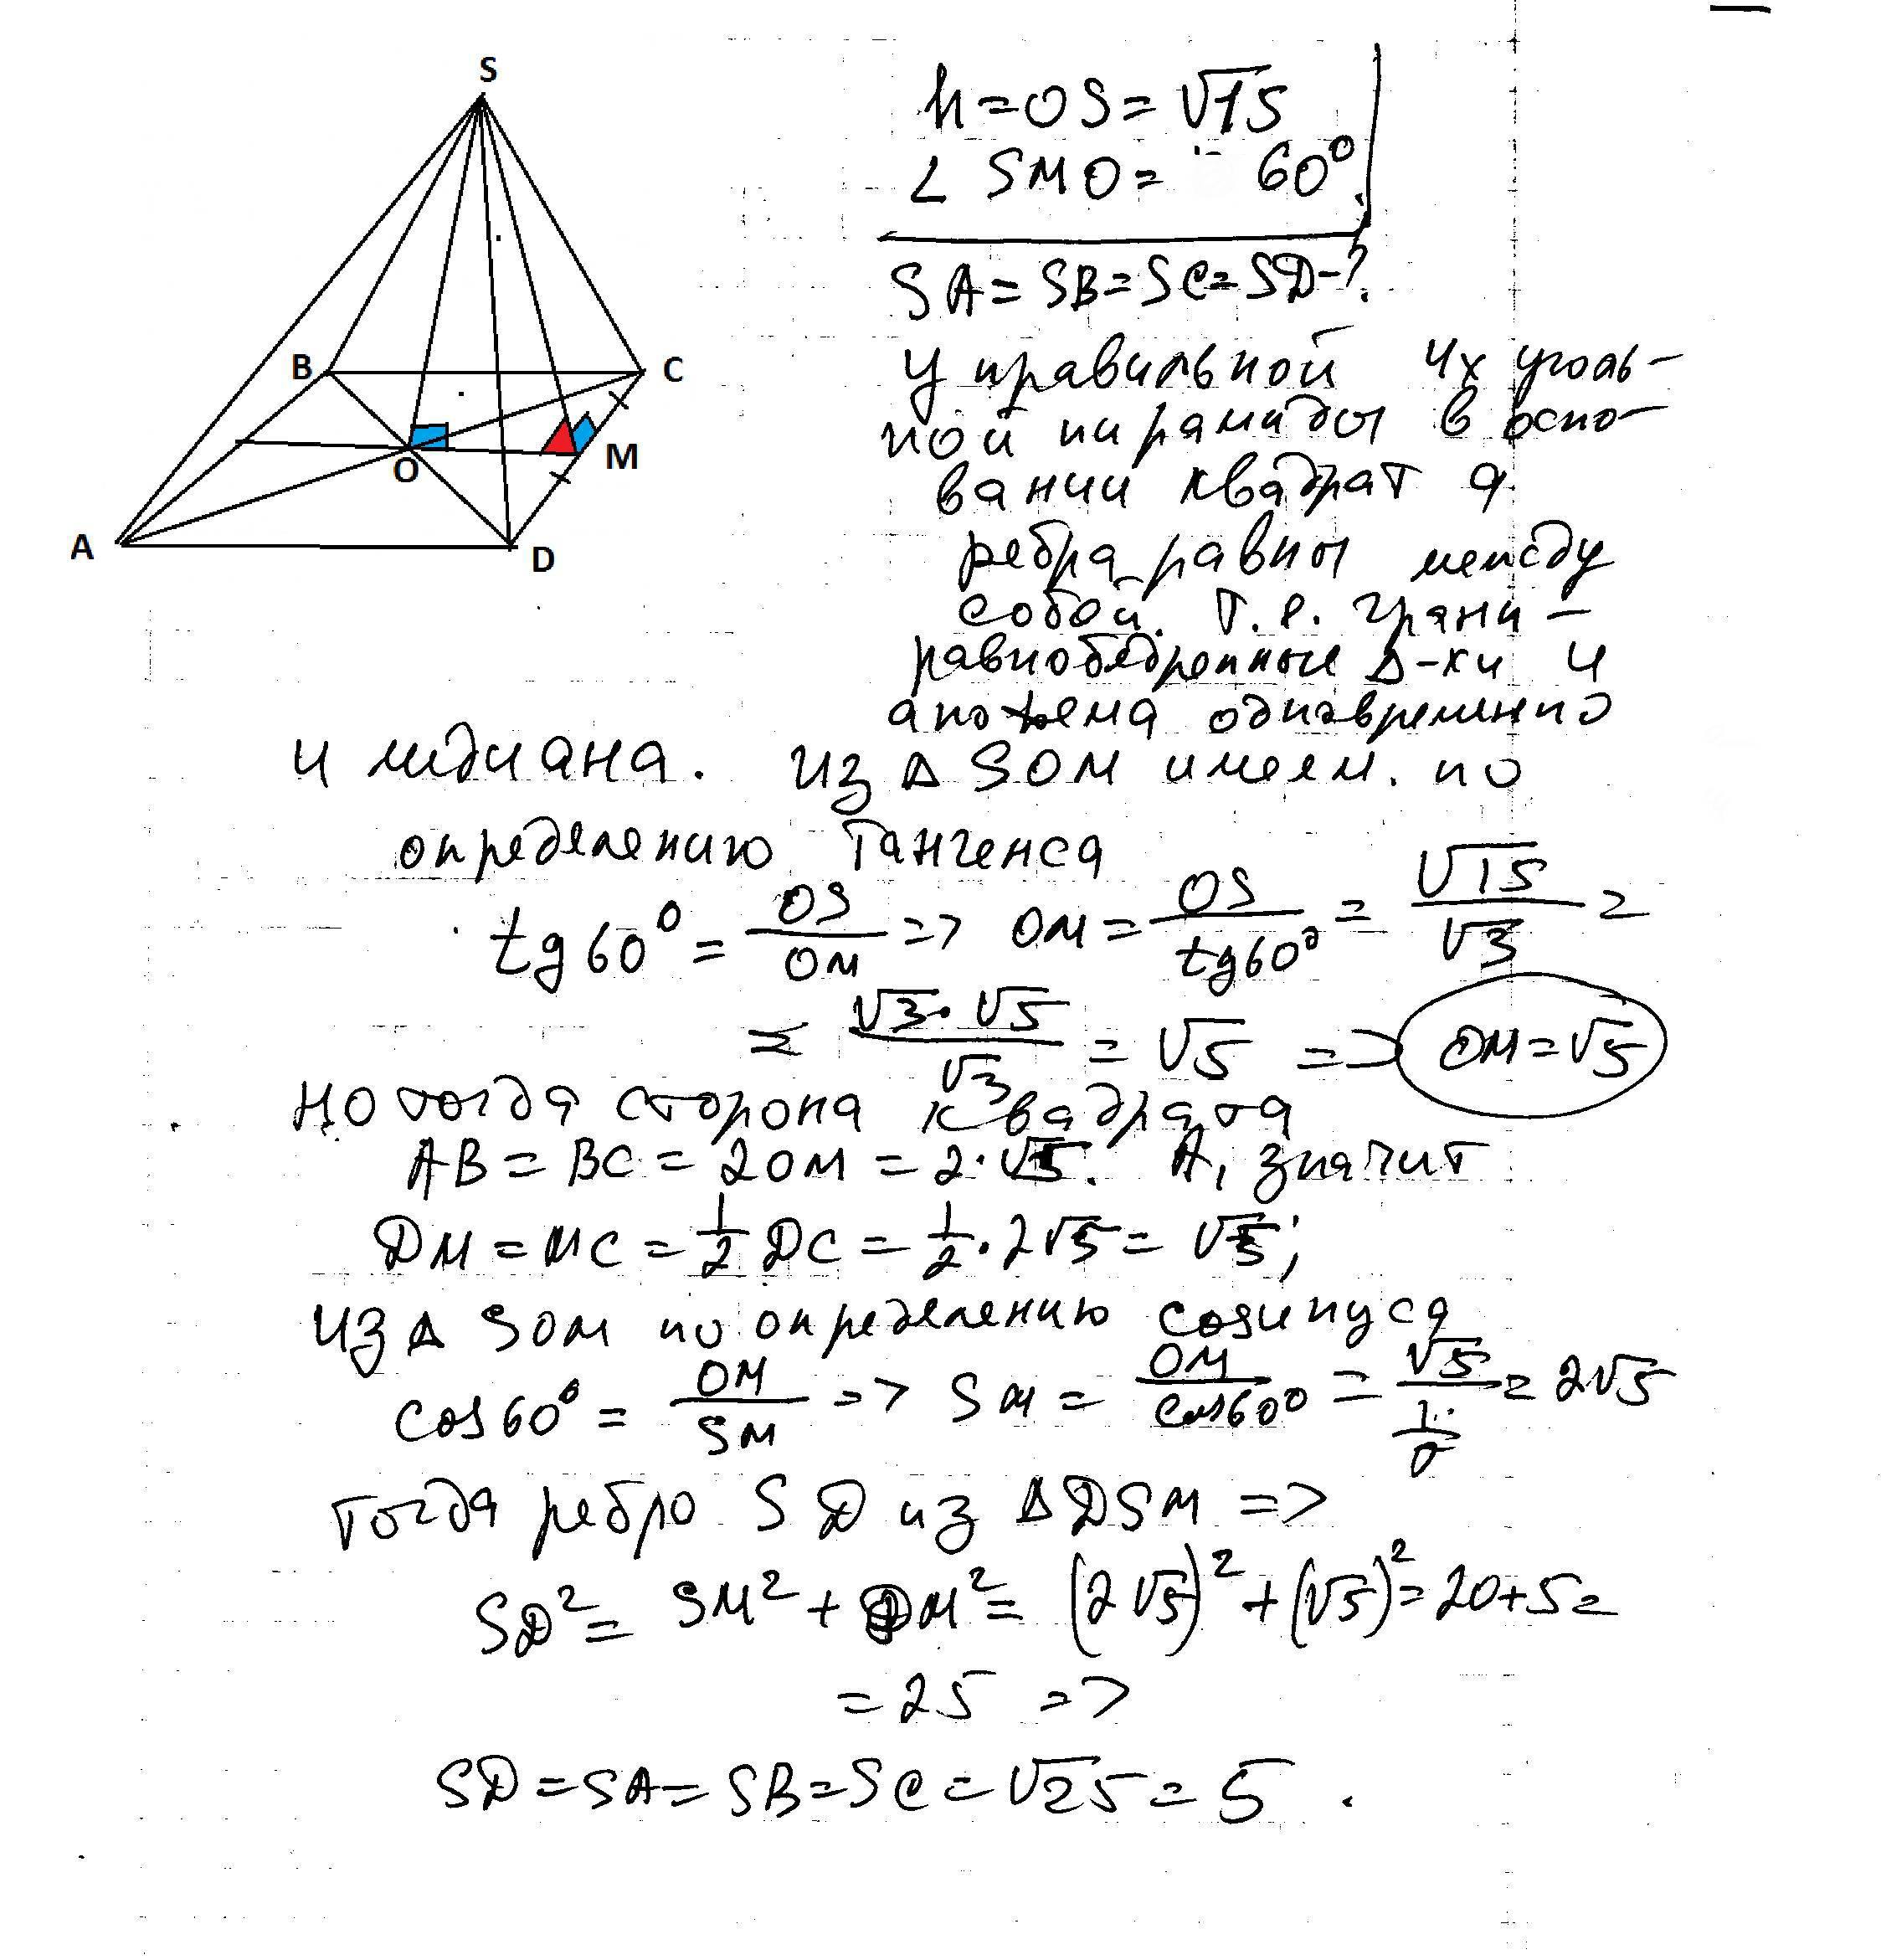 S
B
C
O
M
A
D
h=OS=√15
∠ SMO= 60°
SA=SB=SC=SD-?
У правильной 4х уголь-
ной пирамиды в осно-
вании квадрат а
ребра равны между
собой. Т.е. грани -
равнобедренные Δ-ки и
апофема одновременно
и медиана. Из Δ SOM имеем. по
определению Тангенса
tg 60° = OS/OM => OM = OS/tg60° = √15/√3 =
= √3·√5/√3 = √5 => OM=√5
Но тогда сторона квадрата
AB = BC = 2OM = 2·√5. А, значит
DM = MC = 1/2 DC = 1/2 · 2√5 = √5;
Из Δ SOM по определению косинуса
cos 60° = OM/SM => SM = OM/cos60° = √5/(1/2) = 2√5
Тогда ребро SD из ΔDSM =>
SD² = SM² + DM² = (2√5)² + (√5)² = 20+5=
= 25 =>
SD=SA=SB=SC=√25=5.